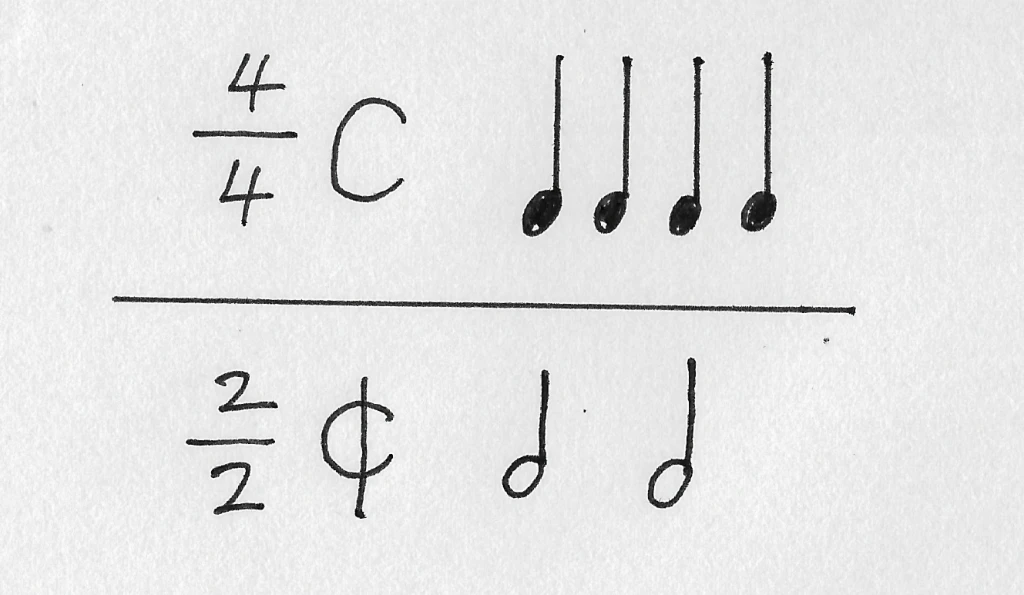 4/4 C
2/2 ¢